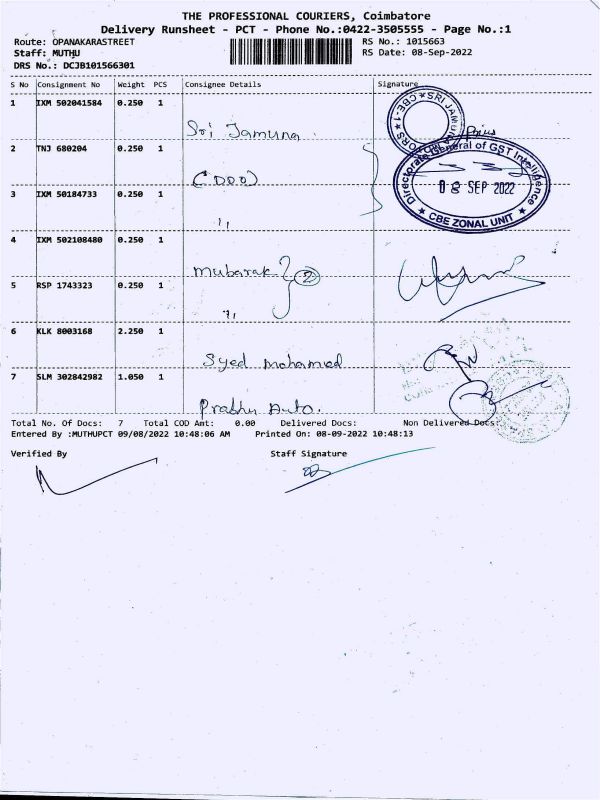 THE PROFESSIONAL COURIERS, Coimbatore
Delivery Runsheet - PCT - Phone No.:0422-3505555 - Page No.:1
Route: OPANAKARASTREET
RS No.: 1015663
Staff: MUTHU
RS Date: 08-Sep-2022
DRS No.: DCJB101566301
S No Consignment No Weight PCS Consignee Details Signature
1 IXM 502041584 0.250 1
Sri Jamuna.
2 TNJ 680204 0.250 1
(DDO)
3 IXM 50184733 0.250 1
"
4 IXM 502108480 0.250 1
mubarak } 2
5 RSP 1743323 0.250 1
"
6 KLK 8003168 2.250 1
Syed mohamed
7 SLM 302842982 1.050 1
Prabhu Auto.
SRI JAMUNA
CBE-1
Directorate General of GST Intelligence
08 SEP 2022
★ CBE ZONAL UNIT ★
Total No. Of Docs: 7 Total COD Amt: 0.00 Delivered Docs: Non Delivered Docs:
Entered By :MUTHUPCT 09/08/2022 10:48:06 AM Printed On: 08-09-2022 10:48:13
Verified By Staff Signature